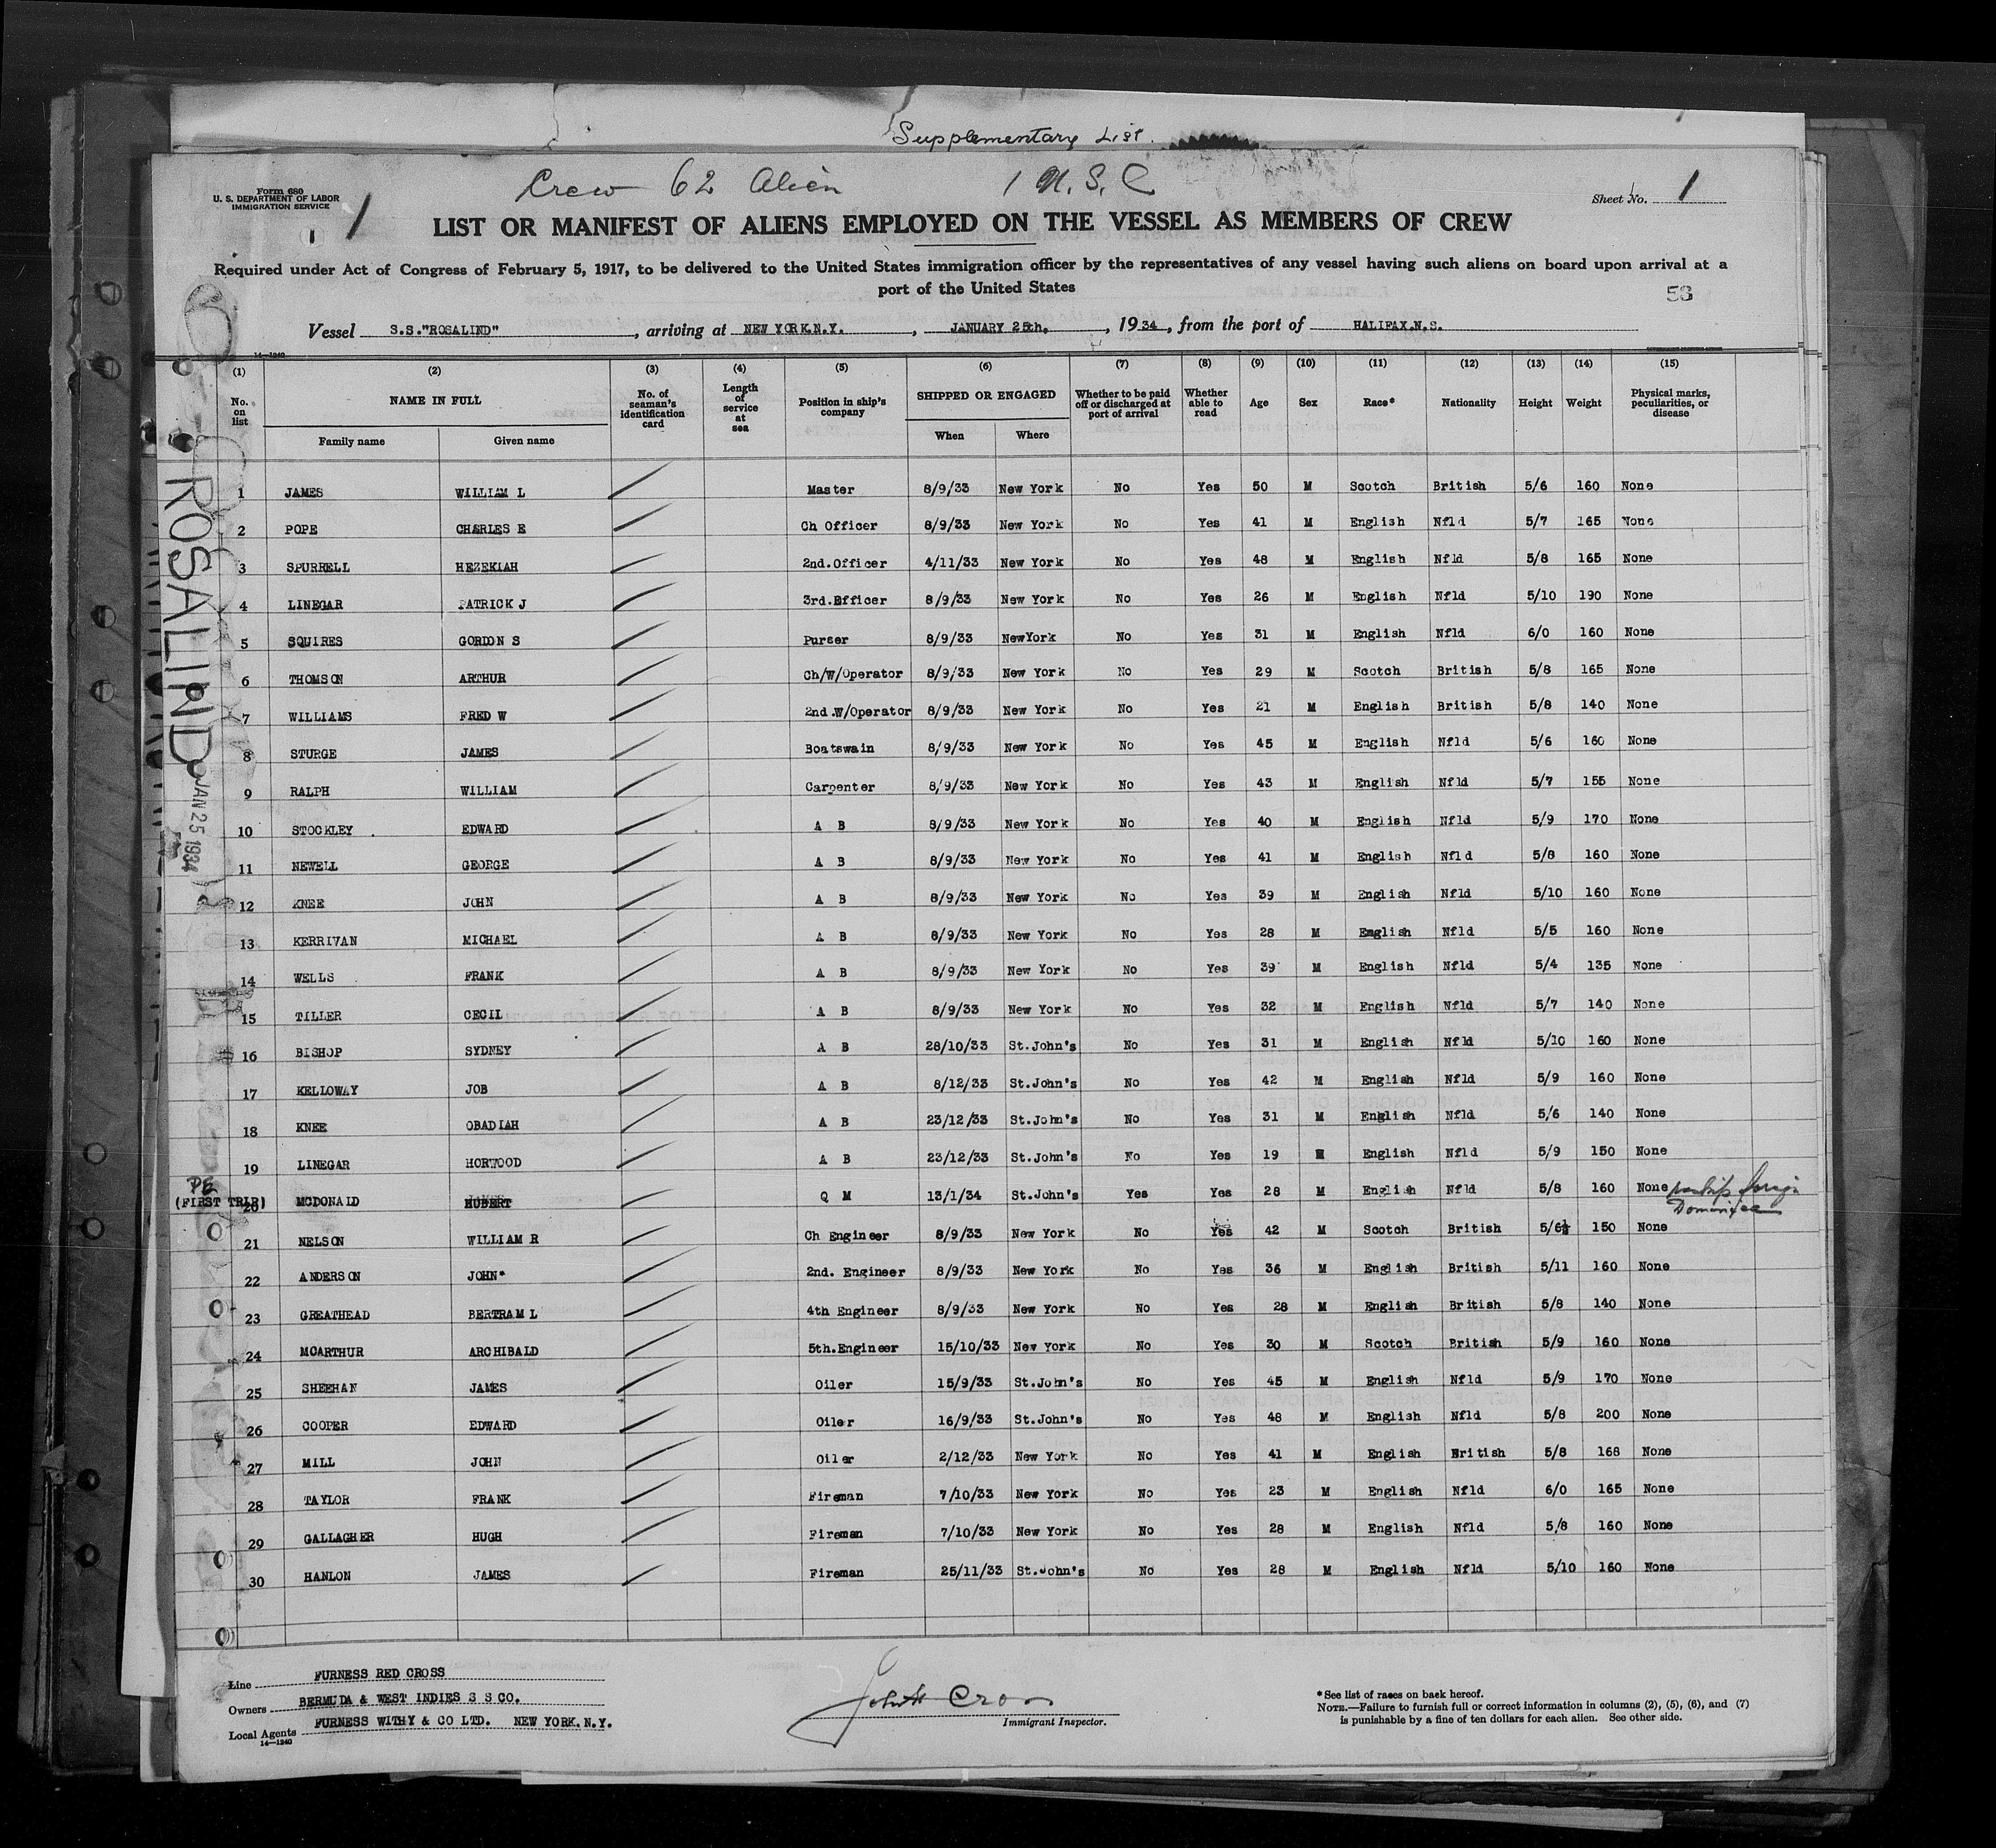 Supplementary List.
Crew 62 Alien 1 U.S.C
Form 680
U. S. DEPARTMENT OF LABOR
IMMIGRATION SERVICE
1
1
Sheet No. 1
LIST OR MANIFEST OF ALIENS EMPLOYED ON THE VESSEL AS MEMBERS OF CREW
Required under Act of Congress of February 5, 1917, to be delivered to the United States immigration officer by the representatives of any vessel having such aliens on board upon arrival at a
port of the United States
58
Vessel S.S."ROSALIND", arriving at NEW YORK.N.Y., JANUARY 25th., 1934, from the port of HALIFAX.N.S.
14—1240
(1) (2) (3) (4) (5) (6) (7) (8) (9) (10) (11) (12) (13) (14) (15)
No. on list NAME IN FULL No. of seaman's identification card Length of service at sea Position in ship's company SHIPPED OR ENGAGED Whether to be paid off or discharged at port of arrival Whether able to read Age Sex Race* Nationality Height Weight Physical marks, peculiarities, or disease
Family name Given name When Where
1 JAMES WILLIAM L Master 8/9/33 New York No Yes 50 M Scotch British 5/6 160 None
2 POPE CHARLES E Ch Officer 8/9/33 New York No Yes 41 M English Nfld 5/7 165 None
3 SPURRELL HEZEKIAH 2nd.Officer 4/11/33 New York No Yes 48 M English Nfld 5/8 165 None
4 LINEGAR PATRICK J 3rd.Officer 8/9/33 New York No Yes 26 M English Nfld 5/10 190 None
5 SQUIRES GORDON S Purser 8/9/33 NewYork No Yes 31 M English Nfld 6/0 160 None
6 THOMSON ARTHUR Ch/W/Operator 8/9/33 New York No Yes 29 M Scotch British 5/8 165 None
7 WILLIAMS FRED W 2nd.W/Operator 8/9/33 New York No Yes 21 M English British 5/8 140 None
8 STURGE JAMES Boatswain 8/9/33 New York No Yes 45 M English Nfld 5/6 160 None
9 RALPH WILLIAM Carpenter 8/9/33 New York No Yes 43 M English Nfld 5/7 155 None
10 STOCKLEY EDWARD A B 8/9/33 New York No Yes 40 M English Nfld 5/9 170 None
11 NEWELL GEORGE A B 8/9/33 New York No Yes 41 M English Nfld 5/8 160 None
12 KNEE JOHN A B 8/9/33 New York No Yes 39 M English Nfld 5/10 160 None
13 KERRIVAN MICHAEL A B 8/9/33 New York No Yes 28 M English Nfld 5/5 160 None
14 WELLS FRANK A B 8/9/33 New York No Yes 39 M English Nfld 5/4 135 None
15 TILLER CECIL A B 8/9/33 New York No Yes 32 M English Nfld 5/7 140 None
16 BISHOP SYDNEY A B 28/10/33 St.John's No Yes 31 M English Nfld 5/10 160 None
17 KELLOWAY JOB A B 8/12/33 St.John's No Yes 42 M English Nfld 5/9 160 None
18 KNEE OBADIAH A B 23/12/33 St.John's No Yes 31 M English Nfld 5/6 140 None
19 LINEGAR HORWOOD A B 23/12/33 St.John's No Yes 19 M English Nfld 5/9 150 None
PE
(FIRST TRIP) 20 MCDONALD HUBERT Q M 13/1/34 St.John's Yes Yes 28 M English Nfld 5/8 160 None
Dominica
21 NELSON WILLIAM R Ch Engineer 8/9/33 New York No Yes 42 M Scotch British 5/6½ 150 None
22 ANDERSON JOHN* 2nd. Engineer 8/9/33 New York No Yes 36 M English British 5/11 160 None
23 GREATHEAD BERTRAM L 4th Engineer 8/9/33 New York No Yes 28 M English British 5/8 140 None
24 MCARTHUR ARCHIBALD 5th.Engineer 15/10/33 New York No Yes 30 M Scotch British 5/9 160 None
25 SHEEHAN JAMES Oiler 15/9/33 St.John's No Yes 45 M English Nfld 5/9 170 None
26 COOPER EDWARD Oiler 16/9/33 St.John's No Yes 48 M English Nfld 5/8 200 None
27 MILL JOHN Oiler 2/12/33 New York No Yes 41 M English British 5/8 168 None
28 TAYLOR FRANK Fireman 7/10/33 New York No Yes 23 M English Nfld 6/0 165 None
29 GALLAGHER HUGH Fireman 7/10/33 New York No Yes 28 M English Nfld 5/8 160 None
30 HANLON JAMES Fireman 25/11/33 St.John's No Yes 28 M English Nfld 5/10 160 None
ROSALIND JAN 25 1934
Line FURNESS RED CROSS
Owners BERMUDA & WEST INDIES S S CO.
Local Agents FURNESS WITHY & CO LTD. NEW YORK.N.Y.
14—1240
Cross
Immigrant Inspector.
*See list of races on back hereof.
NOTE.—Failure to furnish full or correct information in columns (2), (5), (6), and (7)
is punishable by a fine of ten dollars for each alien. See other side.